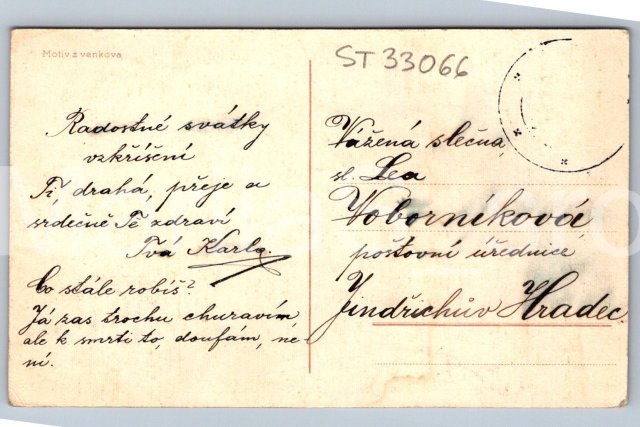 Motiv z venkova
ST 33066
Radostné svátky
vzkříšení
Ti, drahá, přeje a
srdečně Tě zdraví
Tvá Karla.
Co stále robíš?
Já zas trochu churavím,
ale k smrti to, doufám, ne-
ní.
Vážená slečna,
sl. Lea
Voborníková,
poštovní úřednice,
Jindřichův Hradec.